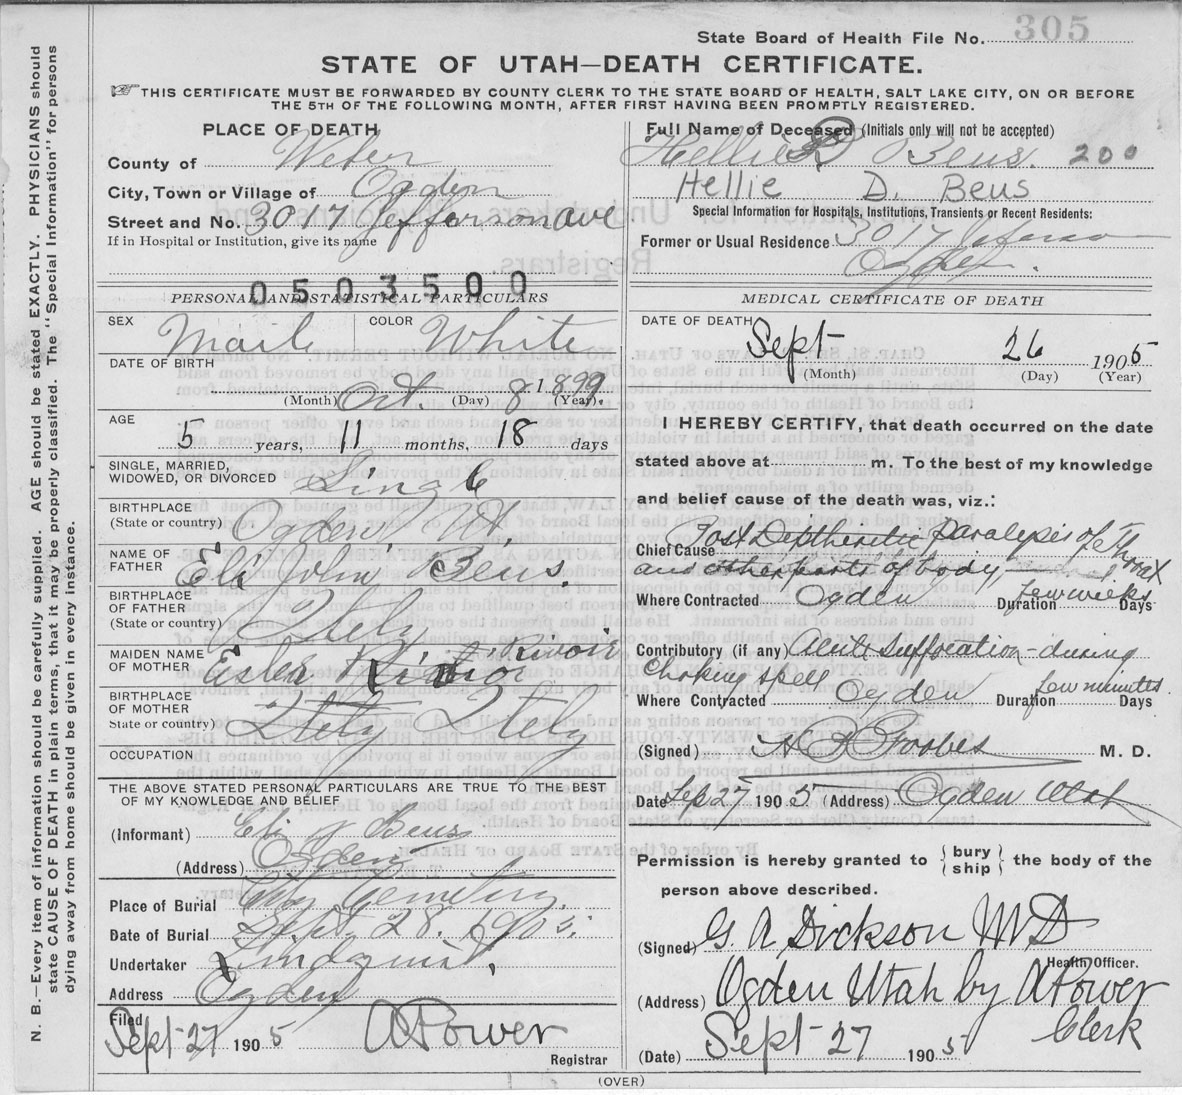 State Board of Health File No. 305
STATE OF UTAH—DEATH CERTIFICATE.
THIS CERTIFICATE MUST BE FORWARDED BY COUNTY CLERK TO THE STATE BOARD OF HEALTH, SALT LAKE CITY, ON OR BEFORE
THE 5TH OF THE FOLLOWING MONTH, AFTER FIRST HAVING BEEN PROMPTLY REGISTERED.
PLACE OF DEATH
County of Weber
City, Town or Village of Ogden
Street and No. 3017 Jefferson ave
If in Hospital or Institution, give its name
0503500
PERSONAL AND STATISTICAL PARTICULARS
SEX Male COLOR White
DATE OF BIRTH
(Month) Oct. (Day) 8 1899 (Year).
AGE 5 years, 11 months, 18 days
SINGLE, MARRIED,
WIDOWED, OR DIVORCED Single
BIRTHPLACE
(State or country) Ogden Ut.
NAME OF
FATHER Eli John Beus.
BIRTHPLACE
OF FATHER
(State or country) Itely
MAIDEN NAME
OF MOTHER
BIRTHPLACE
OF MOTHER
State or country) Itely
OCCUPATION
THE ABOVE STATED PERSONAL PARTICULARS ARE TRUE TO THE BEST
OF MY KNOWLEDGE AND BELIEF
(Informant) Eli J Beus
(Address) Ogden
Place of Burial City Cemetery.
Date of Burial Sept. 28. 1905.
Undertaker Lindquist,
Address Ogden
Filed
Sept 27 1905 A Power
Registrar
Full Name of Deceased (Initials only will not be accepted)
Hellie D Beus. 200
Hellie D. Beus
Special Information for Hospitals, Institutions, Transients or Recent Residents:
Former or Usual Residence 3017 Jefferson
Ogden.
MEDICAL CERTIFICATE OF DEATH
DATE OF DEATH
Sept 26 1905
(Month) (Day) (Year)
I HEREBY CERTIFY, that death occurred on the date
stated above at m. To the best of my knowledge
and belief cause of the death was, viz.:
Chief Cause Post Diptheretic Paralysis of Throat
and other parts of body,
Where Contracted Ogden Duration few weeks Days
Contributory (if any) Acute Suffocation - during
Choking spell
Where Contracted Ogden Duration few minutes. Days
(Signed) M. D.
Date Sep 27 1905 (Address) Ogden Utah
Permission is hereby granted to { bury ship } the body of the
person above described.
(Signed) G. A Dickson MD
Health Officer.
(Address) Ogden Utah by A Power
Clerk
(Date) Sept 27 1905
(OVER)
N. B.—Every item of information should be carefully supplied. AGE should be stated EXACTLY. PHYSICIANS should
state CAUSE OF DEATH in plain terms, that it may be properly classified. The "Special Information" for persons
dying away from home should be given in every instance.